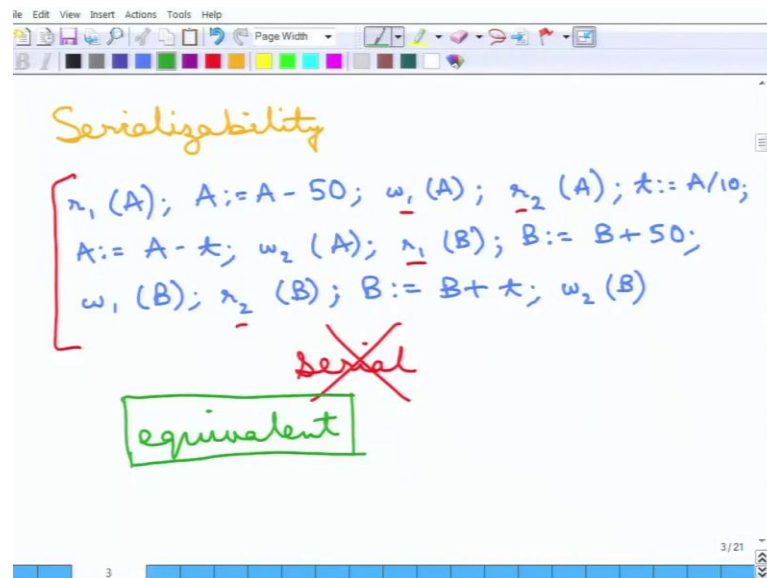 ile Edit View Insert Actions Tools Help
Page Width
B I
Serializability
r₁ (A); A:= A - 50; w₁ (A); r₂ (A); t:= A/10;
A:= A - t; w₂ (A); r₁ (B); B:= B + 50;
w₁ (B); r₂ (B); B:= B + t; w₂ (B)
serial
equivalent
3/21
3